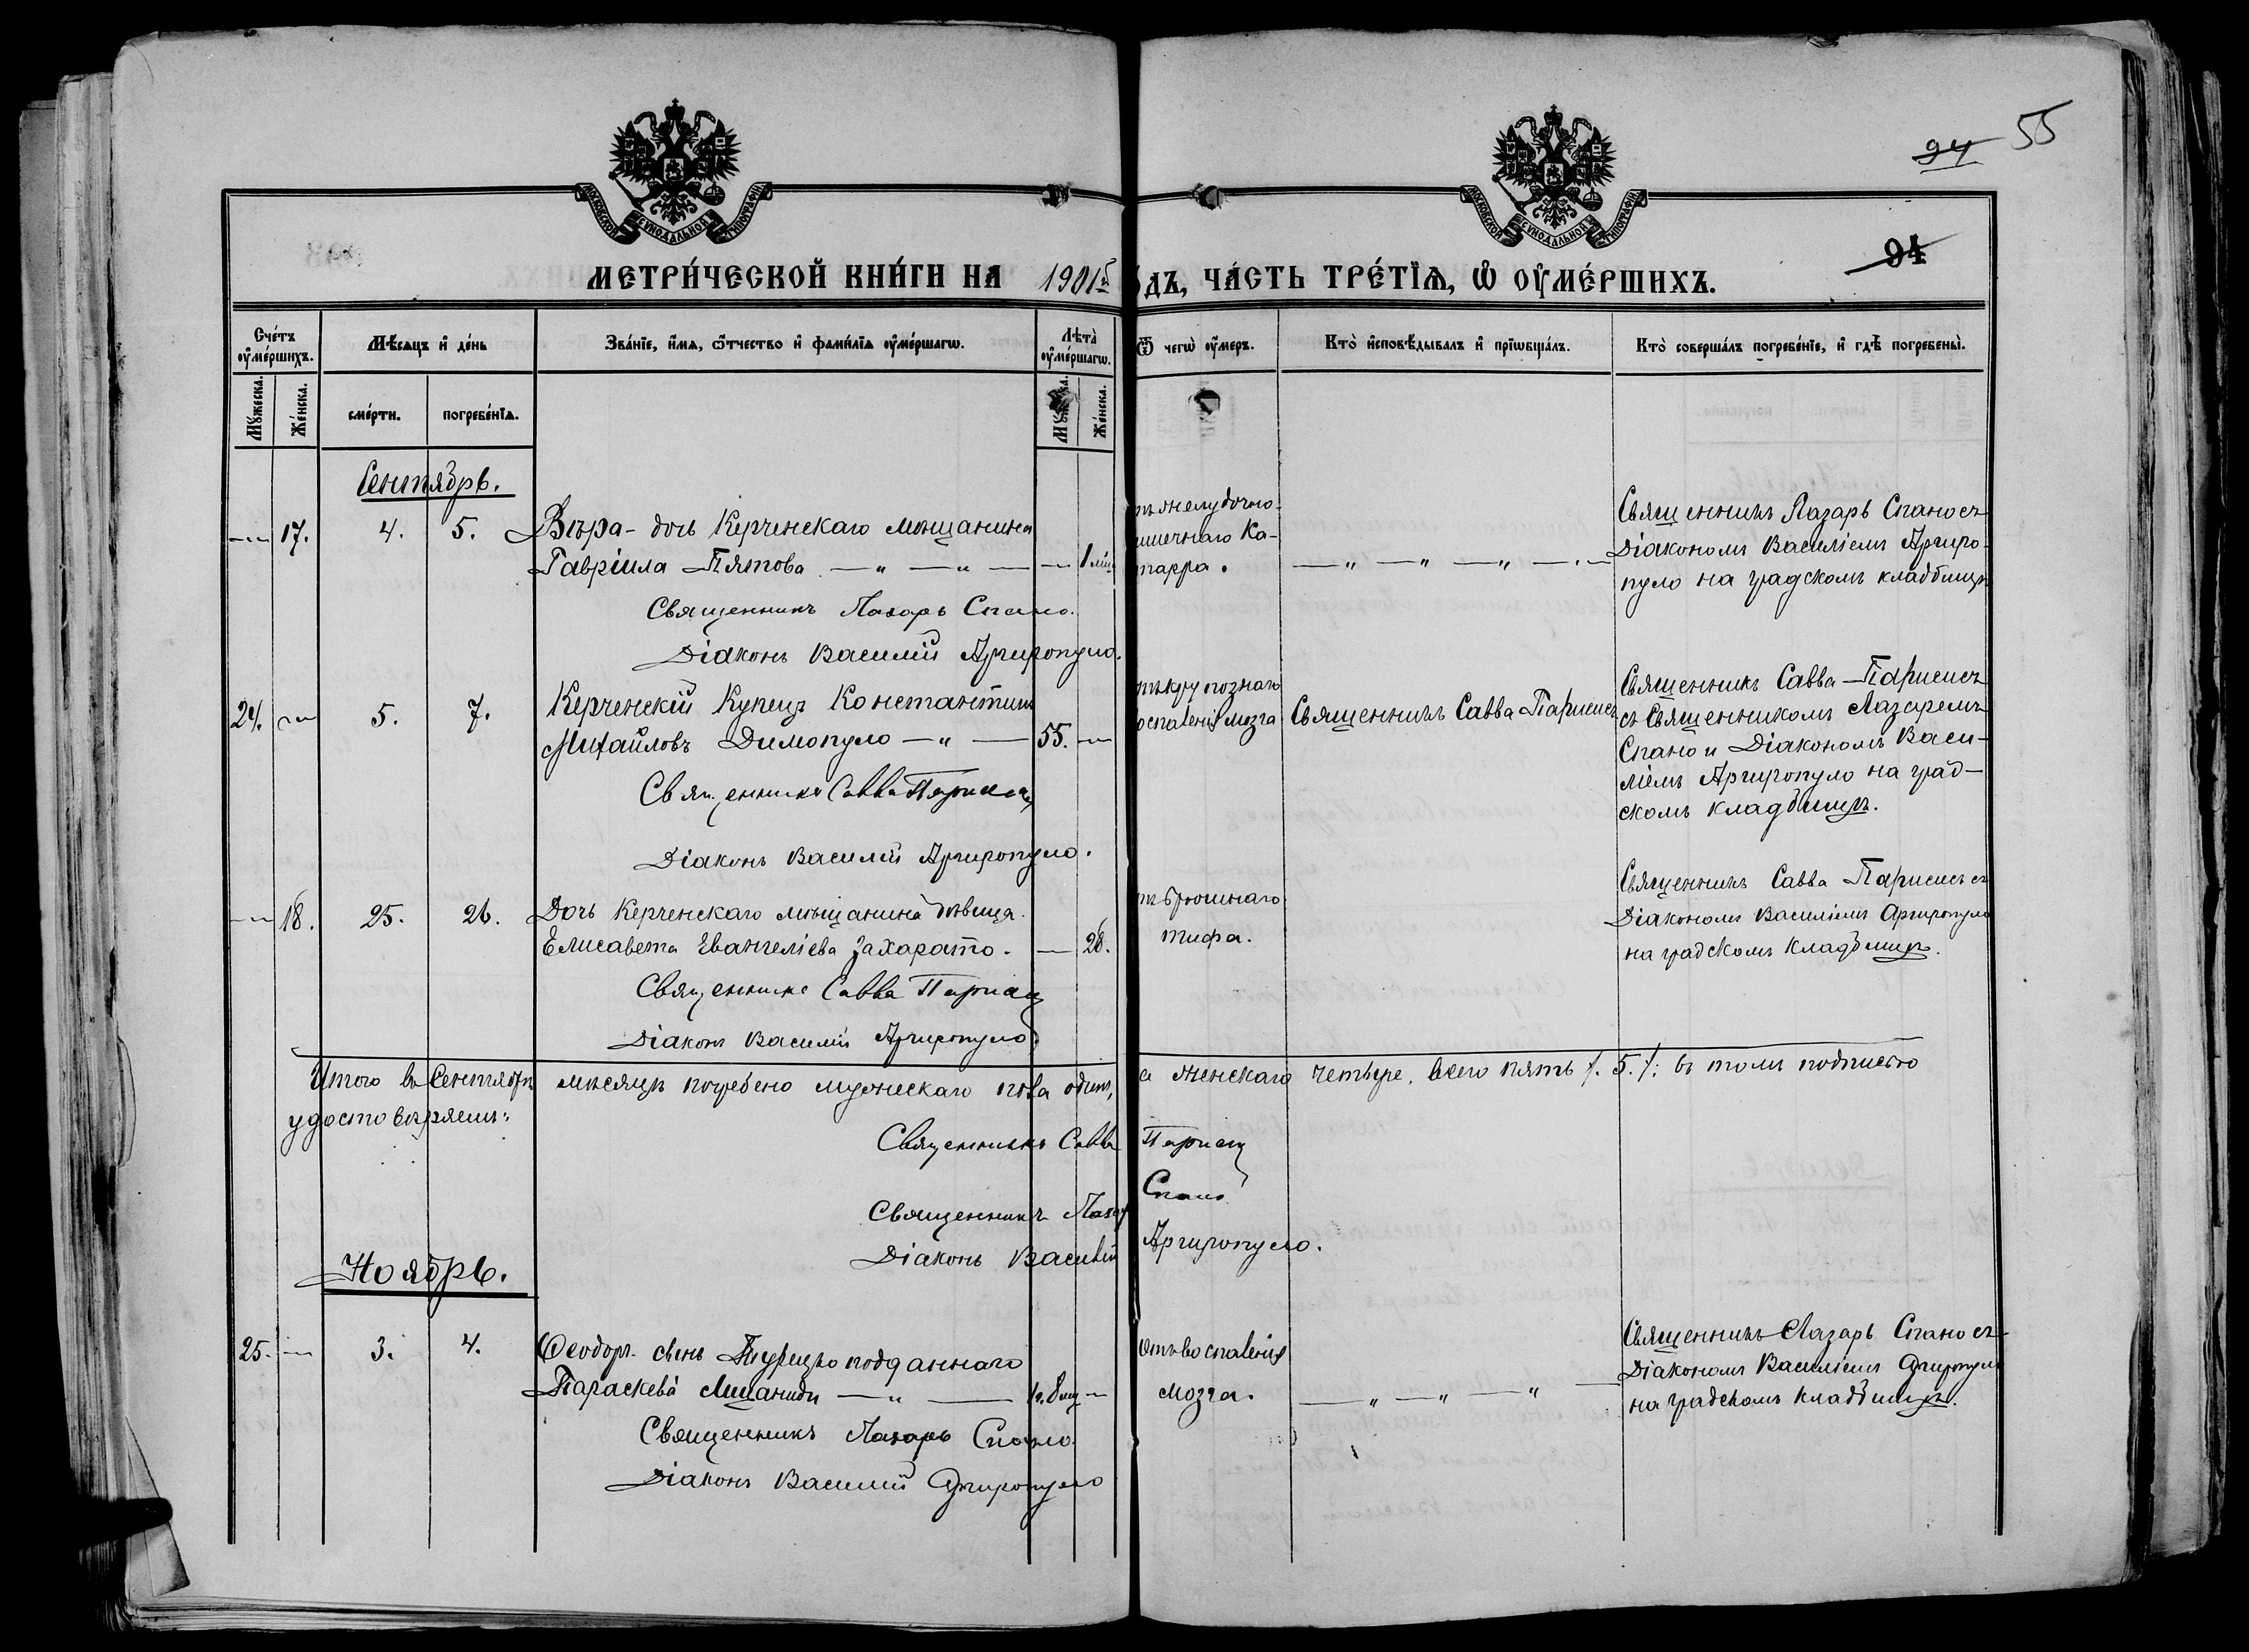 94 55
МОСКОВСКОЙ СѴНОДАЛЬНОЙ ТИПОГРАФІИ
МОСКОВСКОЙ СѴНОДАЛЬНОЙ ТИПОГРАФІИ
94
МЕТРИ́ЧЕСКОЙ КНИ́ГИ НА 1901й ѻ́дъ, ЧА́СТЬ ТРЕ́ТІѦ, Ѡ҆ ОУ҆МЕ́РШИХЪ.
Сче́тъ оу҆ме́ршихъ.
Мѣ́сѧцъ и҆ де́нь
Зва́нїе, и҆́мѧ, ѻ҆́тчество и҆ фами́лїѧ оу҆ме́ршагѡ.
Лѣта̀ оу҆ме́ршагѡ.
Ѿ чегѡ̀ оу҆́меръ.
Кто̀ и҆сповѣ́дывалъ и҆ прїѡбща́лъ.
Кто̀ соверша́лъ погребе́нїе, и҆ гдѣ̀ погребены̀.
Мꙋ́жеска.
Же́нска.
сме́рти.
погребе́нїѧ.
Же́нска.
Сентябрь.
17. 4. 5. Вѣра - дочь Керченскаго мѣщанина
Гавріила Пятова — " — " — 1 мѣс.
Священникъ Лазарь Спано.
Діаконъ Василій Аргиропуло.
тъ желудочно-
ишечнаго Ка-
тарра.
— " — " — " —
Священникъ Лазарь Спано съ
Діакономъ Василіемъ Аргиро-
пуло на градскомъ кладбищѣ
24. 5. 7. Керченскій Купецъ Константинъ
Михайловъ Димопуло — " — 55.
Священникъ Савва Парисисъ
Діаконъ Василій Аргиропуло.
тъ крупознаго
оспаленія мозга
Священникъ Савва Парисисъ
Священникъ Савва Парисисъ
съ Священникомъ Лазаремъ
Спано и Діакономъ Васи-
ліемъ Аргиропуло на град-
скомъ кладбищѣ.
18. 25. 26. Дочь Керченскаго мѣщанина дѣвица
Елисавета Евангеліева Захарато. — 28.
Священникъ Савва Парисисъ
Діаконъ Василій Аргиропуло
тъ брюшнаго
тифа.
Священникъ Савва Парисисъ съ
Діакономъ Василіемъ Аргиропуло
на градскомъ кладбищѣ.
Итого въ Сентябрѣ мѣсяцѣ погребено мужескаго пола одинъ, а женскаго четыре, всего пять /. 5. /: въ томъ подписью
удостовѣряемъ:
Священникъ Савва Парисисъ
Священникъ Лазарь Спано
Діаконъ Василій Аргиропуло.
Ноябрь.
25. 3. 4. Ѳеодоръ сынъ Турецко подданнаго
Параскева — " — 1 г. 8 мѣс.
Священникъ Лазарь Спано.
Діаконъ Василій Аргиропуло
Отъ воспаленія
мозга.
— " — " — " —
Священникъ Лазарь Спано съ
Діакономъ Василіемъ Аргиропуло
на градскомъ кладбищѣ.